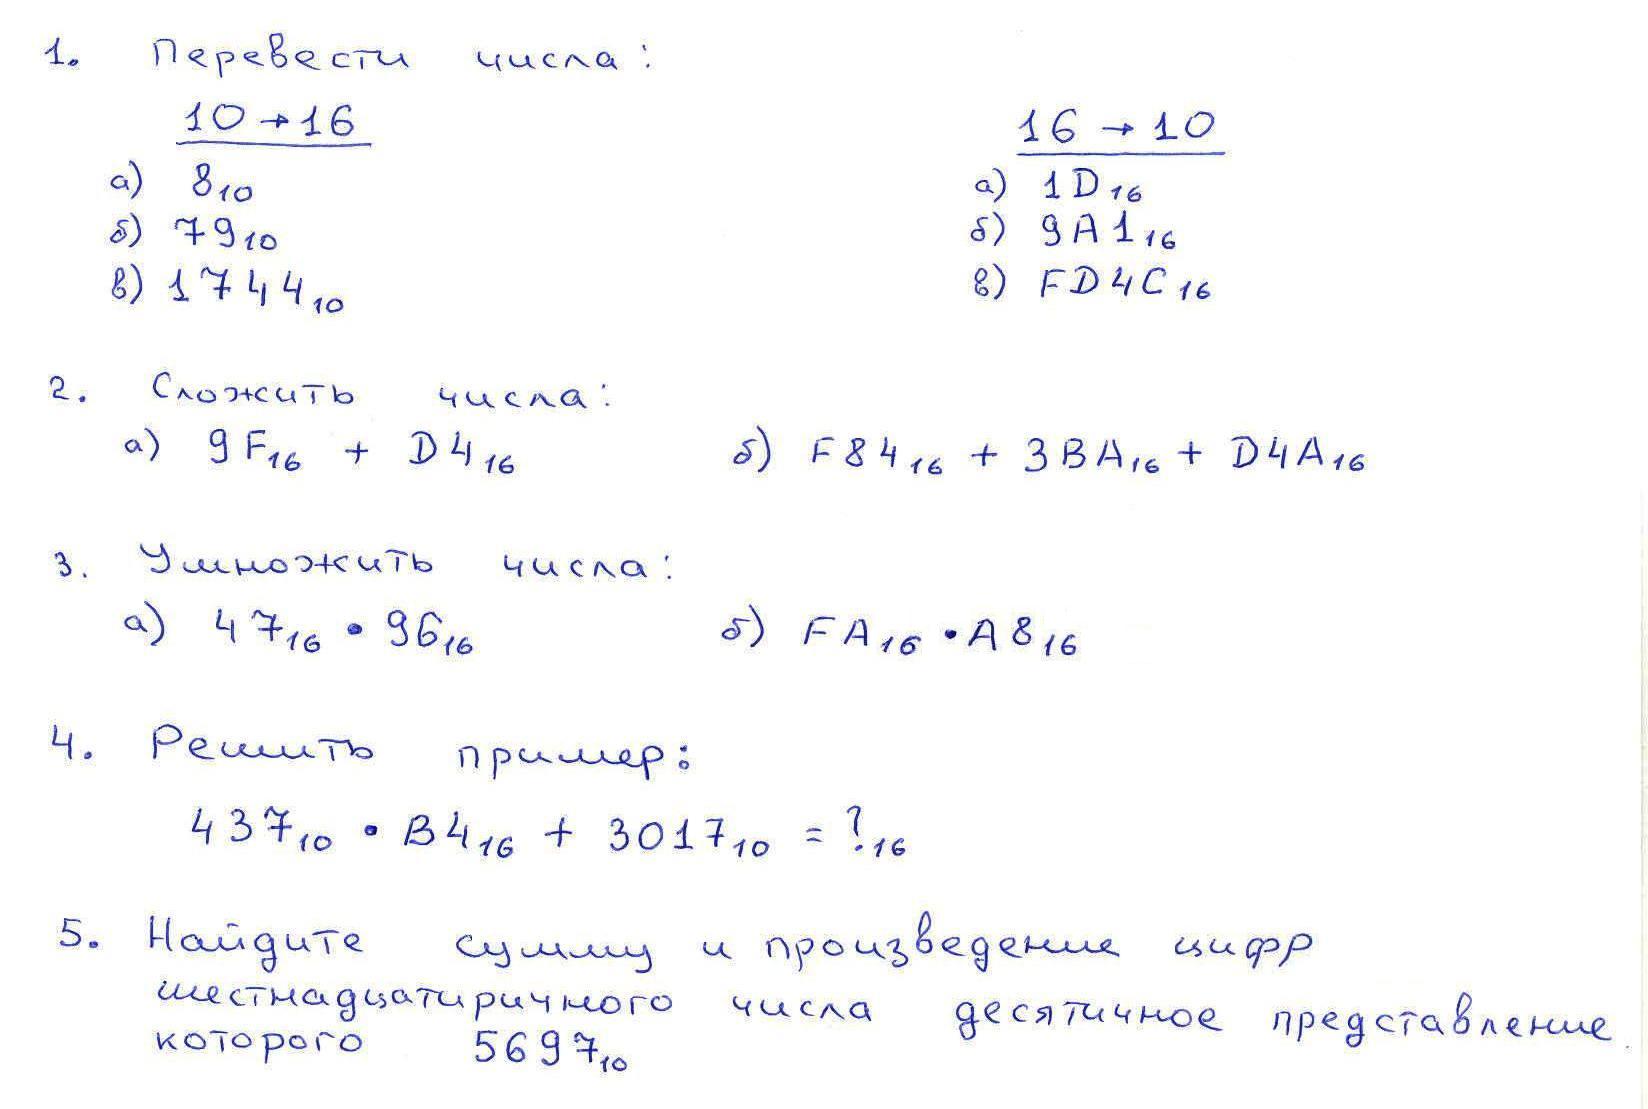 1. Перевести числа:
10 → 16
а) 8₁₀
б) 79₁₀
в) 1744₁₀
16 → 10
а) 1D₁₆
б) 9A1₁₆
в) FD4C₁₆
2. Сложить числа:
а) 9F₁₆ + D4₁₆
б) F84₁₆ + 3BA₁₆ + D4A₁₆
3. Умножить числа:
а) 47₁₆ • 96₁₆
б) FA₁₆ • A8₁₆
4. Решить пример:
437₁₀ • B4₁₆ + 3017₁₀ = ?₁₆
5. Найдите сумму и произведение цифр
шестнадцатиричного числа десятичное представление
которого 5697₁₀